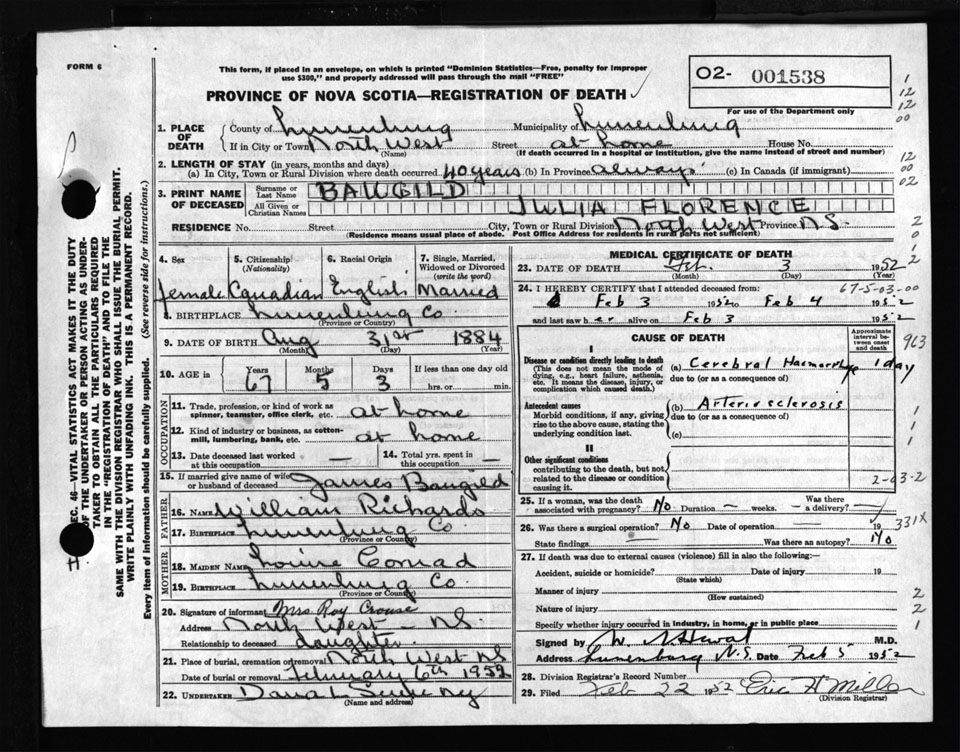 FORM 6
This form, if placed in an envelope, on which is printed "Dominion Statistics—Free, penalty for improper
use $300," and properly addressed will pass through the mail "FREE"
02- 001538
For use of the Department only
PROVINCE OF NOVA SCOTIA—REGISTRATION OF DEATH
1. PLACE OF DEATH
County of Lunenburg Municipality of Lunenburg
If in City or Town North West (Name) Street at home House No.
(If death occurred in a hospital or institution, give the name instead of street and number)
2. LENGTH OF STAY (in years, months and days)
(a) In City, Town or Rural Division where death occurred 40 years (b) In Province always (c) In Canada (if immigrant)
3. PRINT NAME OF DECEASED
Surname or Last Name BAUGILD
All Given or Christian Names JULIA FLORENCE
RESIDENCE No. Street City, Town or Rural Division North West Province N.S.
(Residence means usual place of abode. Post Office Address for residents in rural parts not sufficient)
4. Sex female
5. Citizenship (Nationality) Canadian
6. Racial Origin English
7. Single, Married, Widowed or Divorced (write the word) Married
8. BIRTHPLACE Lunenburg Co. (Province or Country)
9. DATE OF BIRTH Aug (Month) 31st (Day) 1884 (Year)
10. AGE in Years 67 Months 5 Days 3 If less than one day
hrs. or min.
OCCUPATION
11. Trade, profession, or kind of work as spinner, teamster, office clerk, etc. at home
12. Kind of industry or business, as cotton-mill, lumbering, bank, etc. at home
13. Date deceased last worked at this occupation —
14. Total yrs. spent in this occupation —
15. If married give name of wife or husband of deceased James Baugild
FATHER
16. NAME William Richards
17. BIRTHPLACE Lunenburg Co. (Province or Country)
MOTHER
18. MAIDEN NAME Louise Conrad
19. BIRTHPLACE Lunenburg Co. (Province or Country)
20. Signature of informant Mrs. Roy Crouse
Address North West - N.S.
Relationship to deceased daughter
21. Place of burial, cremation or removal North West NS
Date of burial or removal February 6th 1952
22. UNDERTAKER
(Name and address)
MEDICAL CERTIFICATE OF DEATH
23. DATE OF DEATH Feb. (Month) 3 (Day) 1952 (Year)
24. I HEREBY CERTIFY that I attended deceased from:
67-5-03-00
Feb 3 1952 to Feb 4 1952
and last saw her alive on Feb 3 1952
CAUSE OF DEATH
Approximate interval between onset and death
963
I
Disease or condition directly leading to death
(This does not mean the mode of dying, e.g., heart failure, asthenia, etc. It means the disease, injury, or complication which caused death.)
(a) Cerebral Haemorrhage 1 day
due to (or as a consequence of)
Antecedent causes
Morbid conditions, if any, giving rise to the above cause, stating the underlying condition last.
(b) Arteriosclerosis
due to (or as a consequence of)
(c)
II
Other significant conditions
contributing to the death, but not related to the disease or condition causing it.
2-03-2
25. If a woman, was the death associated with pregnancy? No Duration — weeks. Was there a delivery? —
331X
26. Was there a surgical operation? No Date of operation — 19
State findings Was there an autopsy? No
27. If death was due to external causes (violence) fill in also the following:—
Accident, suicide or homicide? (State which) Date of injury 19
Manner of injury (How sustained)
Nature of injury
Specify whether injury occurred in industry, in home, or in public place
Signed by M.D.
Address Lunenburg N.S. Date Feb 5 1952
28. Division Registrar's Record Number
29. Filed Feb 22 1952 Eric H Miller
(Division Registrar)
SEC. 46—VITAL STATISTICS ACT MAKES IT THE DUTY
OF THE UNDERTAKER OR PERSON ACTING AS UNDER-
TAKER TO OBTAIN ALL THE PARTICULARS REQUIRED
IN THE "REGISTRATION OF DEATH" AND TO FILE THE
SAME WITH THE DIVISION REGISTRAR WHO SHALL ISSUE THE BURIAL PERMIT.
WRITE PLAINLY WITH UNFADING INK. THIS IS A PERMANENT RECORD.
Every item of information should be carefully supplied. (See reverse side for instructions.)